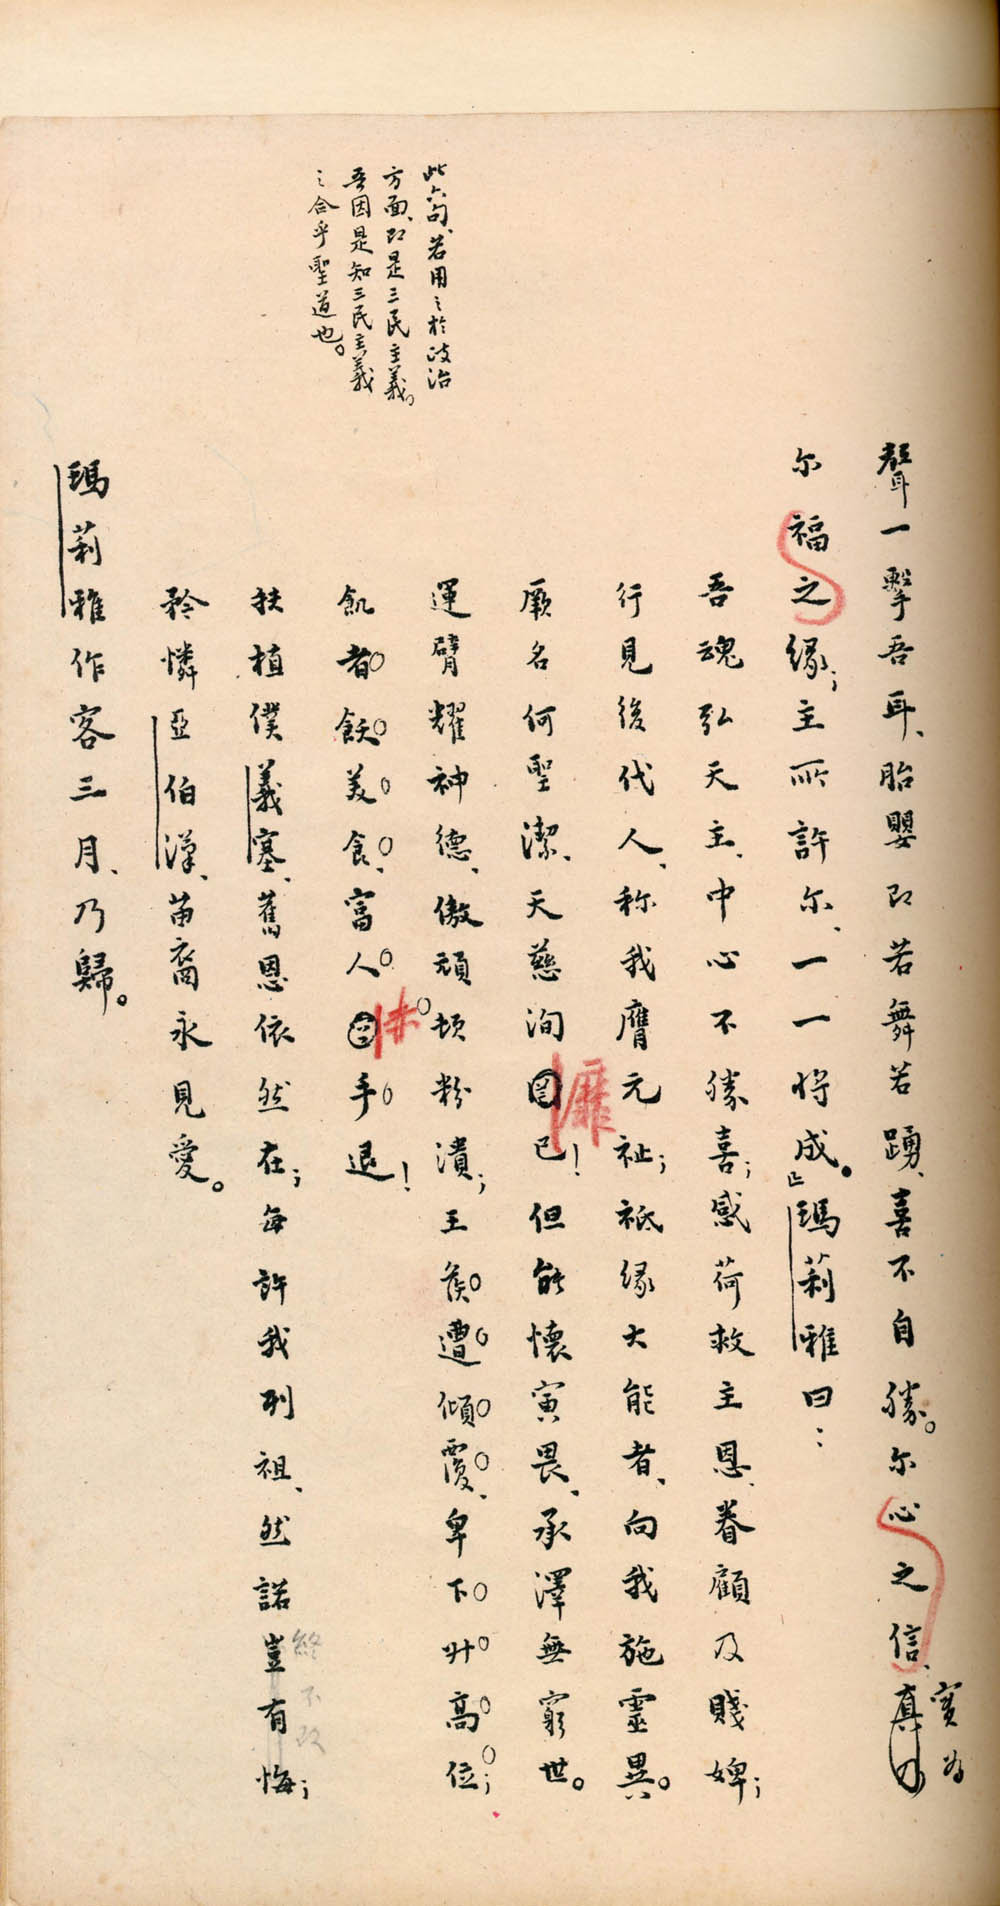 聲一擊吾耳、胎嬰即若舞若踴、喜不自勝。尔心之信、真乃
實為
尔福之緣；主所許尔、一一將成。』瑪莉雅曰：
吾魂弘天主、中心不勝喜；感荷救主恩、眷顧及賤婢；
行見後代人、称我膺元祉；祇緣大能者、向我施靈異。
厥名何聖潔、天慈洵罔已！但能懷寅畏、承澤無窮世。
靡
運臂耀神德、傲頑頓粉潰；王侯遭傾覆、卑下升高位；
飢者飫美食、富人空手退！
赤
扶植僕義塞、舊恩依然在；每許我列祖、然諾豈有悔；
終不改
矜憐亞伯漢、苗裔永見愛。
瑪莉雅作客三月、乃歸。
此六句、若用〻於政治
方面、即是三民主義。
吾因是知三民主義
〻合乎聖道也。